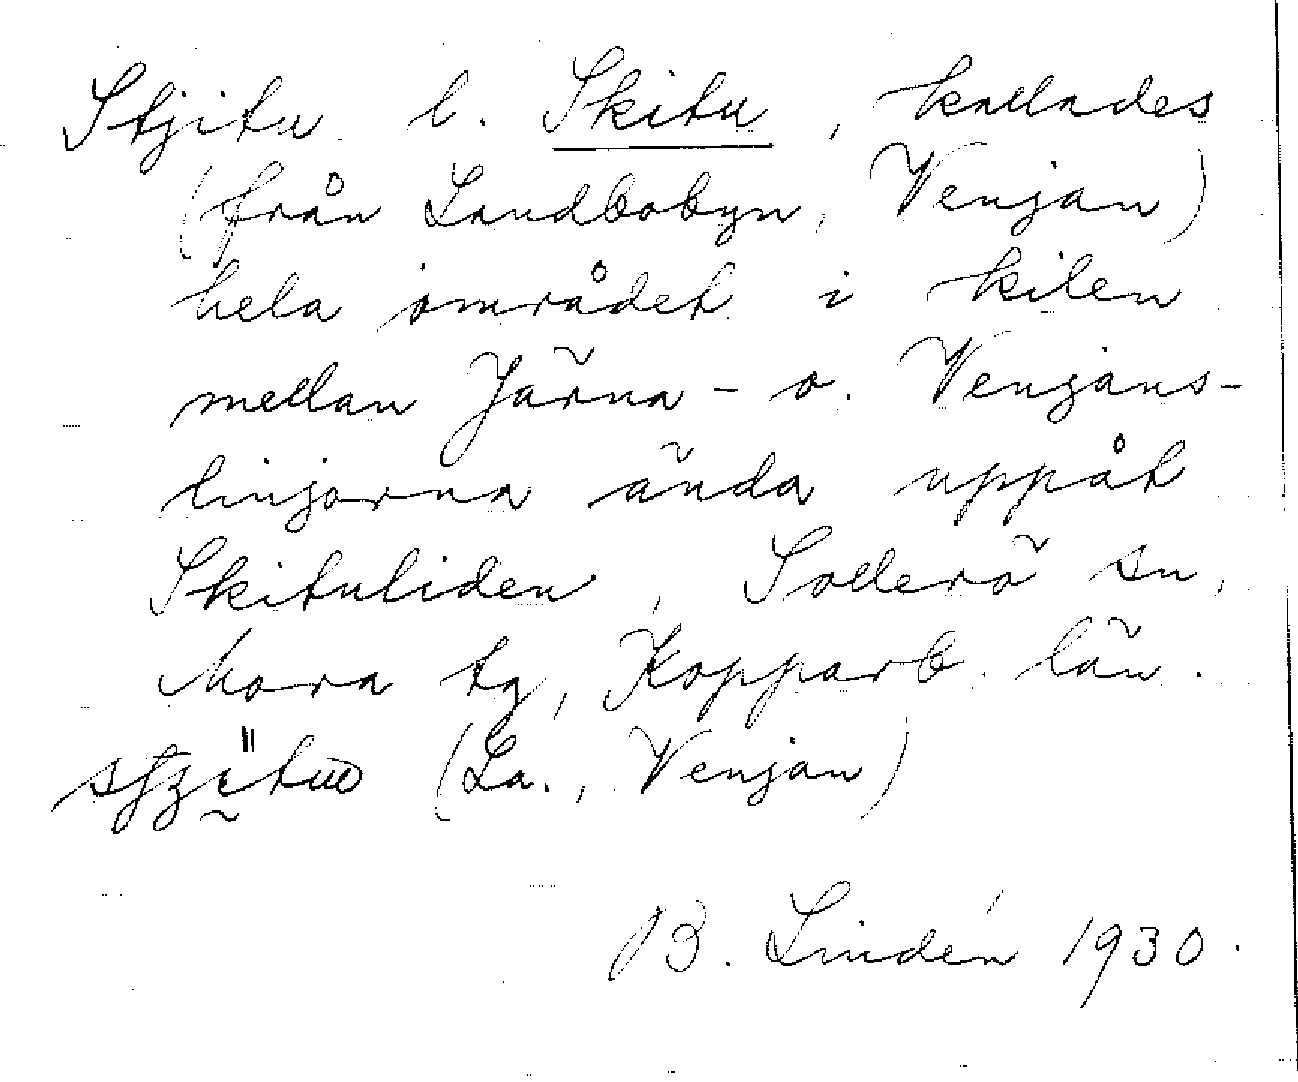 Stjitu l. Skitu, kallades
(från Landbobyn, Venjan)
hela området i kilen
mellan Järna- o. Venjans-
linjorna ända uppåt
Skituliden, Sollerö sn,
Mora tg, Kopparb. län.
(La., Venjan)
B. Lindén 1930.